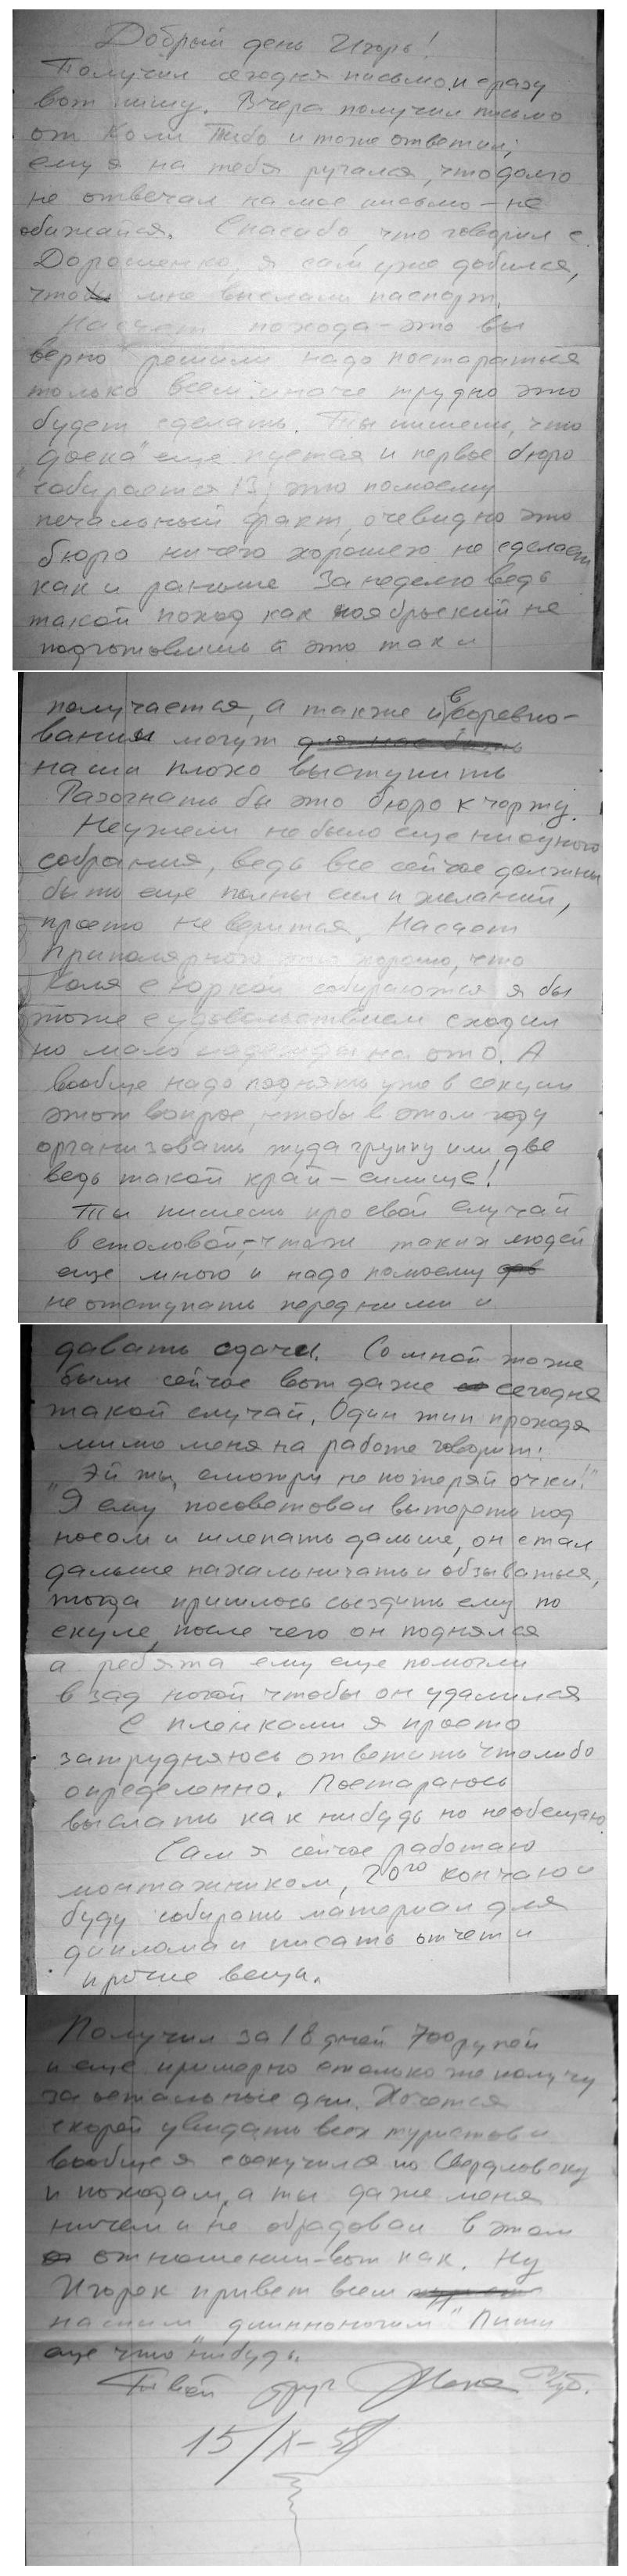 Добрый день Игорь!
Получил сегодня письмо и сразу
вот пишу. Вчера получил письмо
от Коли Тибо и тоже ответил,
ему я на тебя ругался, что долго
не отвечал на мое письмо – не
обижайся. Спасибо, что говорил с
Дорошенко, я сам уже добился,
чтобы мне выслали паспорт.
Насчет похода – это вы
верно решили надо постараться
только всем иначе трудно это
будет сделать. Ты пишешь, что
"доска" еще пустая и первое бюро
собирается 13, это помоему
печальный факт, очевидно это
бюро ничего хорошего не сделает
как и раньше За неделю ведь
такой поход как ноябрьский не
подготовишь а это так и
получается, а также и в соревно-
вании могут
наши плохо выступить
Разогнать бы это бюро к чорту.
Неужели не было еще ни одного
собрания, ведь все сейчас должны
быть еще полны сил и желаний,
просто не верится. Насчет
Приполярного это хорошо, что
Коля с Юркой собираются я бы
тоже с удовольствием сходил
но мало надежды на это. А
вообще надо поднять уже в секции
этот вопрос, чтобы в этом году
организовать туда группу или две
ведь такой край – силище!
Ты пишешь про свой случай
в столовой, – что ж таких людей
еще много и надо помоему
не отступать перед ними и
давать сдачи. Со мной тоже
были сейчас вот даже сегодня
такой случай. Один тип проходя
мимо меня на работе говорит:
"Эй ты, смотри не потеряй очки!"
Я ему посоветовал вытереть под
носом и шлепать дальше, он стал
дальше нахальничать и обзываться,
тогда пришлось съездить ему по
скуле, после чего он поднялся
а ребята ему еще помогли
в зад ногой чтобы он удалился
С пленками я просто
затрудняюсь ответить что либо
определенно. Постараюсь
выслать как нибудь но не обещаю.
Сам я сейчас работаю
монтажником, 20го кончаю и
буду собирать материал для
диплома и писать отчет и
прочие вещи.
Получил за 18 дней 700 рупей
и еще примерно столько же получу
за остальные дни. Хочется
скорей увидать всех туристов и
вообще я соскучился по Свердловску
и походам, а ты даже меня
ничем и не обрадовал в этом
отношении – вот как. Ну
Игорек привет всем
нашим "длинноногим" Пиши
еще что нибудь.
Твой друг
15/X – 58